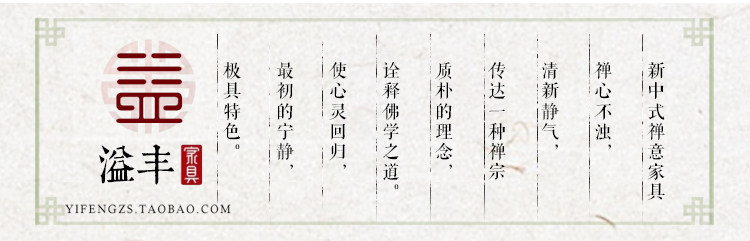 新中式禅意家具
禅心不浊，
清新静气，
传达一种禅宗
质朴的理念，
诠释佛学之道。
使心灵回归，
最初的宁静，
极具特色。
溢丰
家具
YIFENGZS.TAOBAO.COM